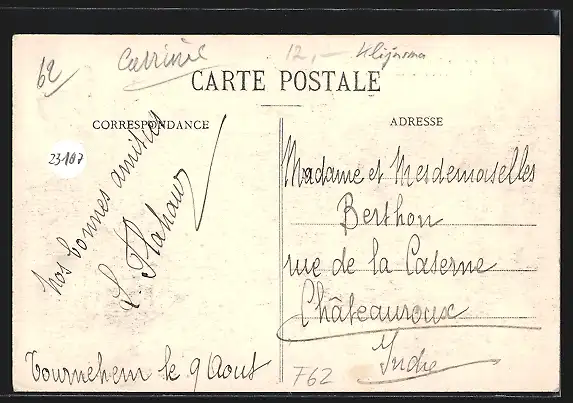 62
Carrière
12,— Klijnsma
CARTE POSTALE
CORRESPONDANCE
ADRESSE
23107
nos bonnes amitiés
L. Flahaut
Tournehem le 9 Aout
Madame et Mesdemoiselles
Berthon
rue de la Caserne
Châteauroux
Indre
F62